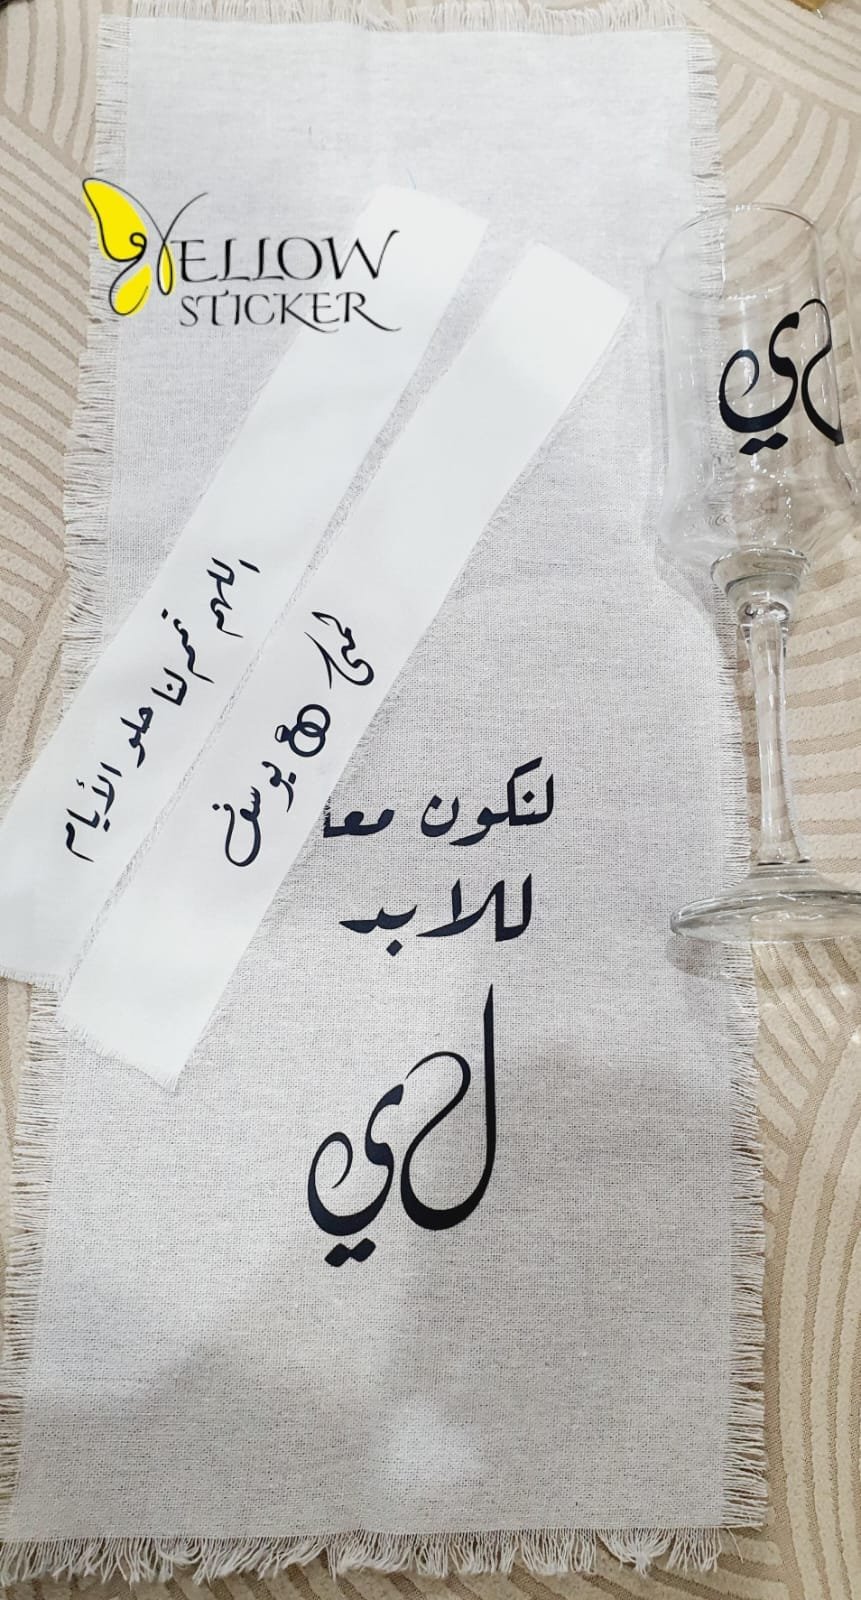 YELLOW
STICKER
اللهم تمم لنا حلو الأيام
لمى
يوسف
لنكون معا
للابد
لي
لي